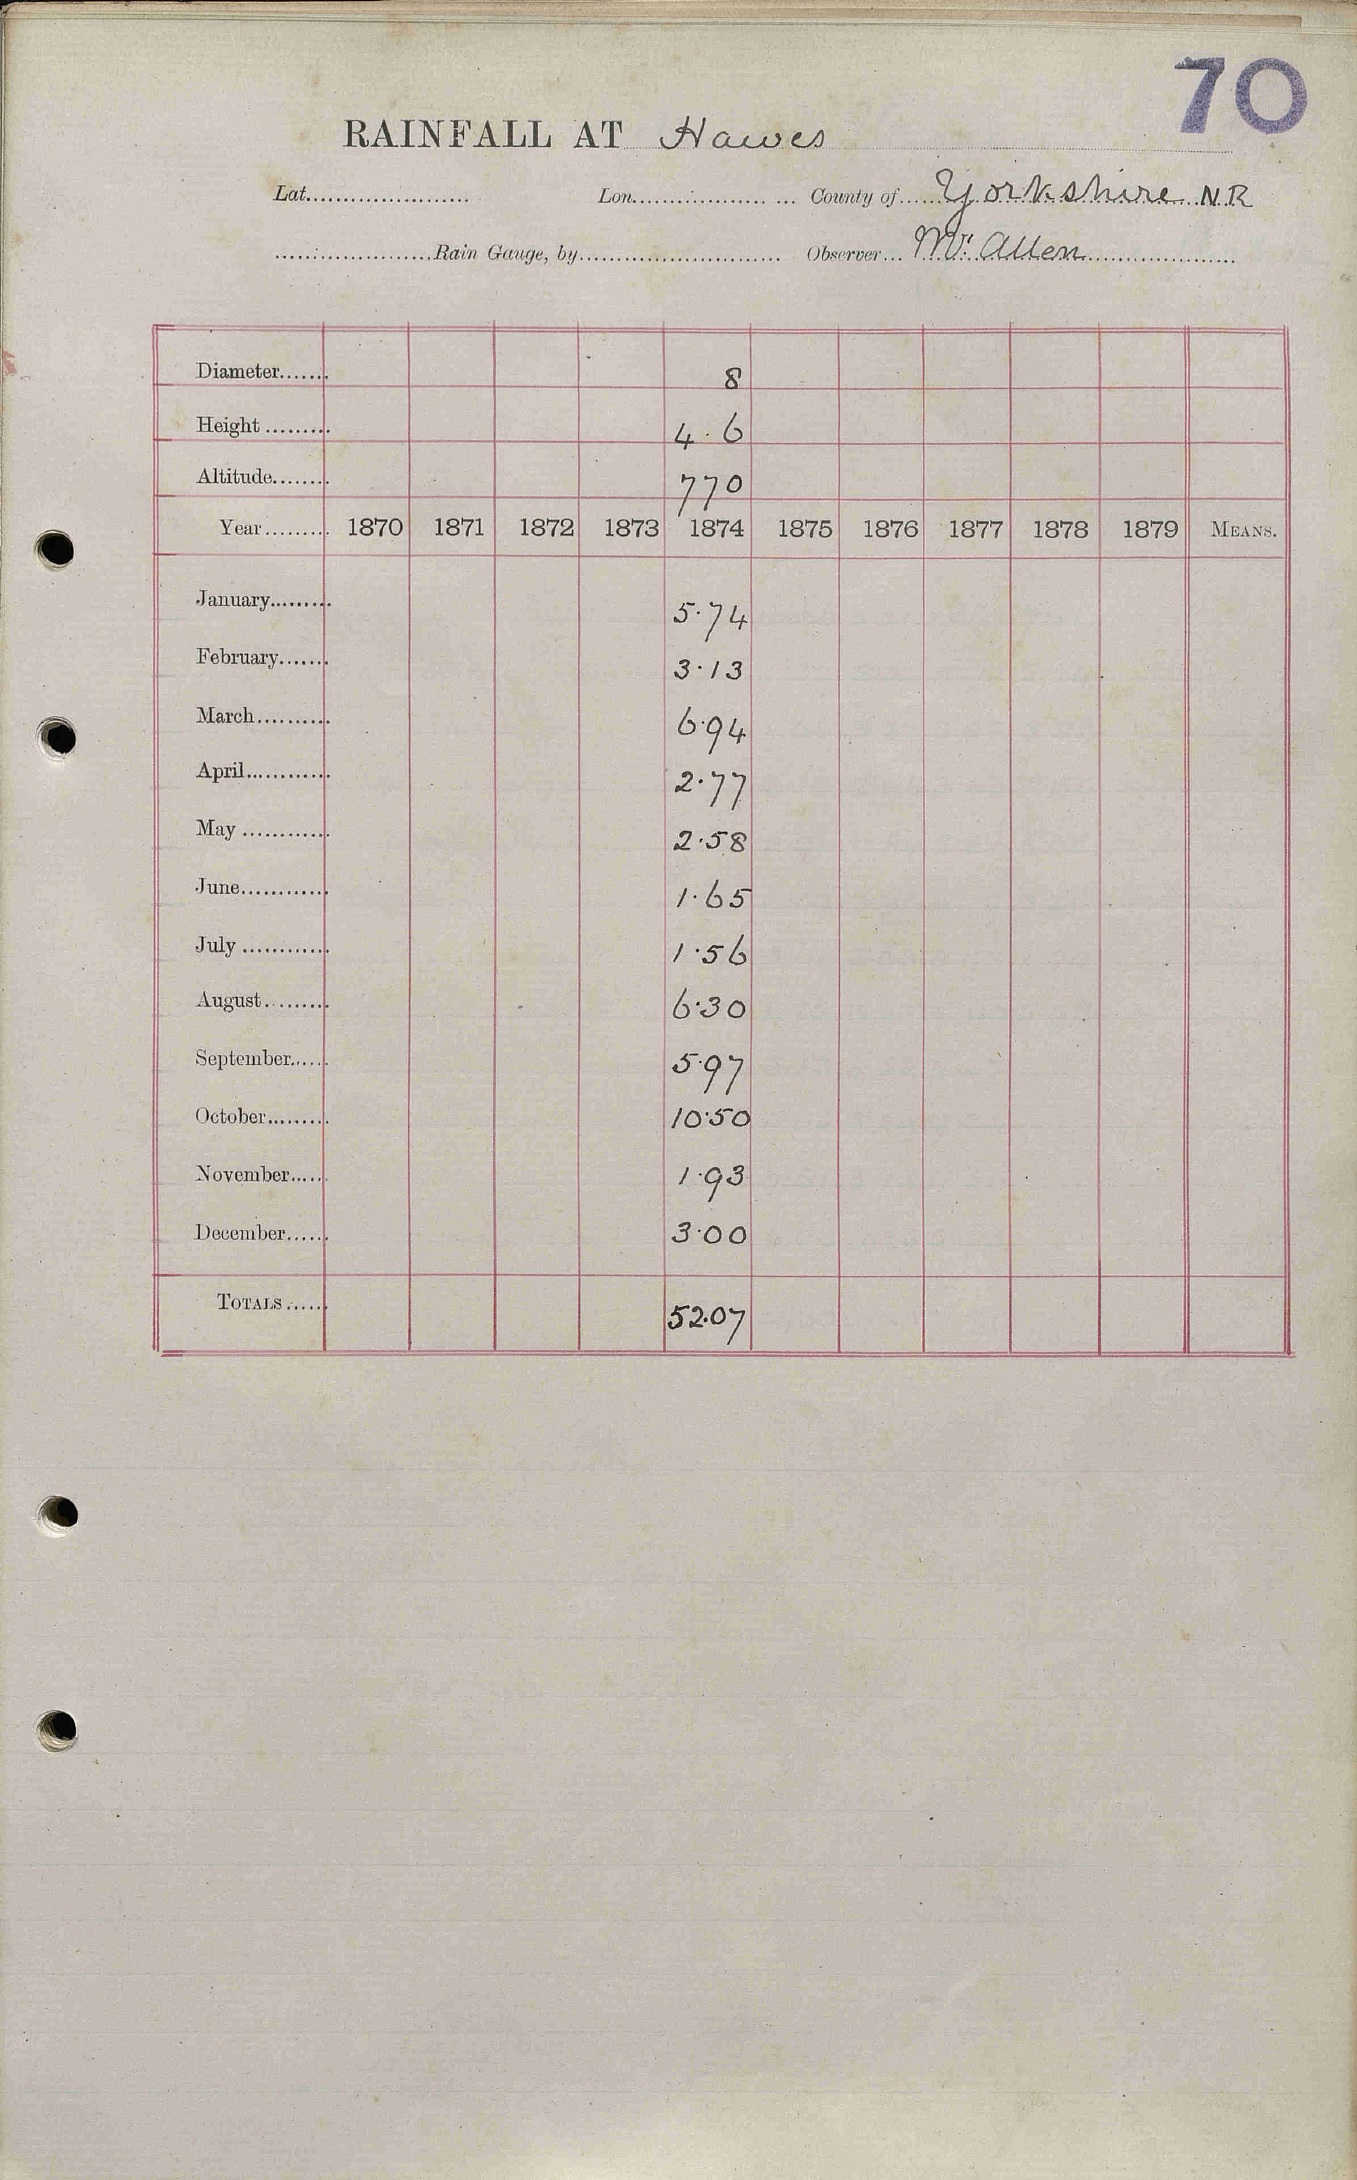 70
RAINFALL AT Hawes
Lat...................... Lon...................... County of...... Yorkshire N.R
......................Rain Gauge, by........................... Observer... Mr Allen
Diameter....... 8
Height......... 4.6
Altitude........ 770
Year......... 1870 1871 1872 1873 1874 1875 1876 1877 1878 1879 MEANS.
January......... 5.74
February....... 3.13
March.......... 6.94
April............ 2.77
May ............ 2.58
June............ 1.65
July ............ 1.56
August......... 6.30
September...... 5.97
October......... 10.50
November..... 1.93
December...... 3.00
TOTALS...... 52.07